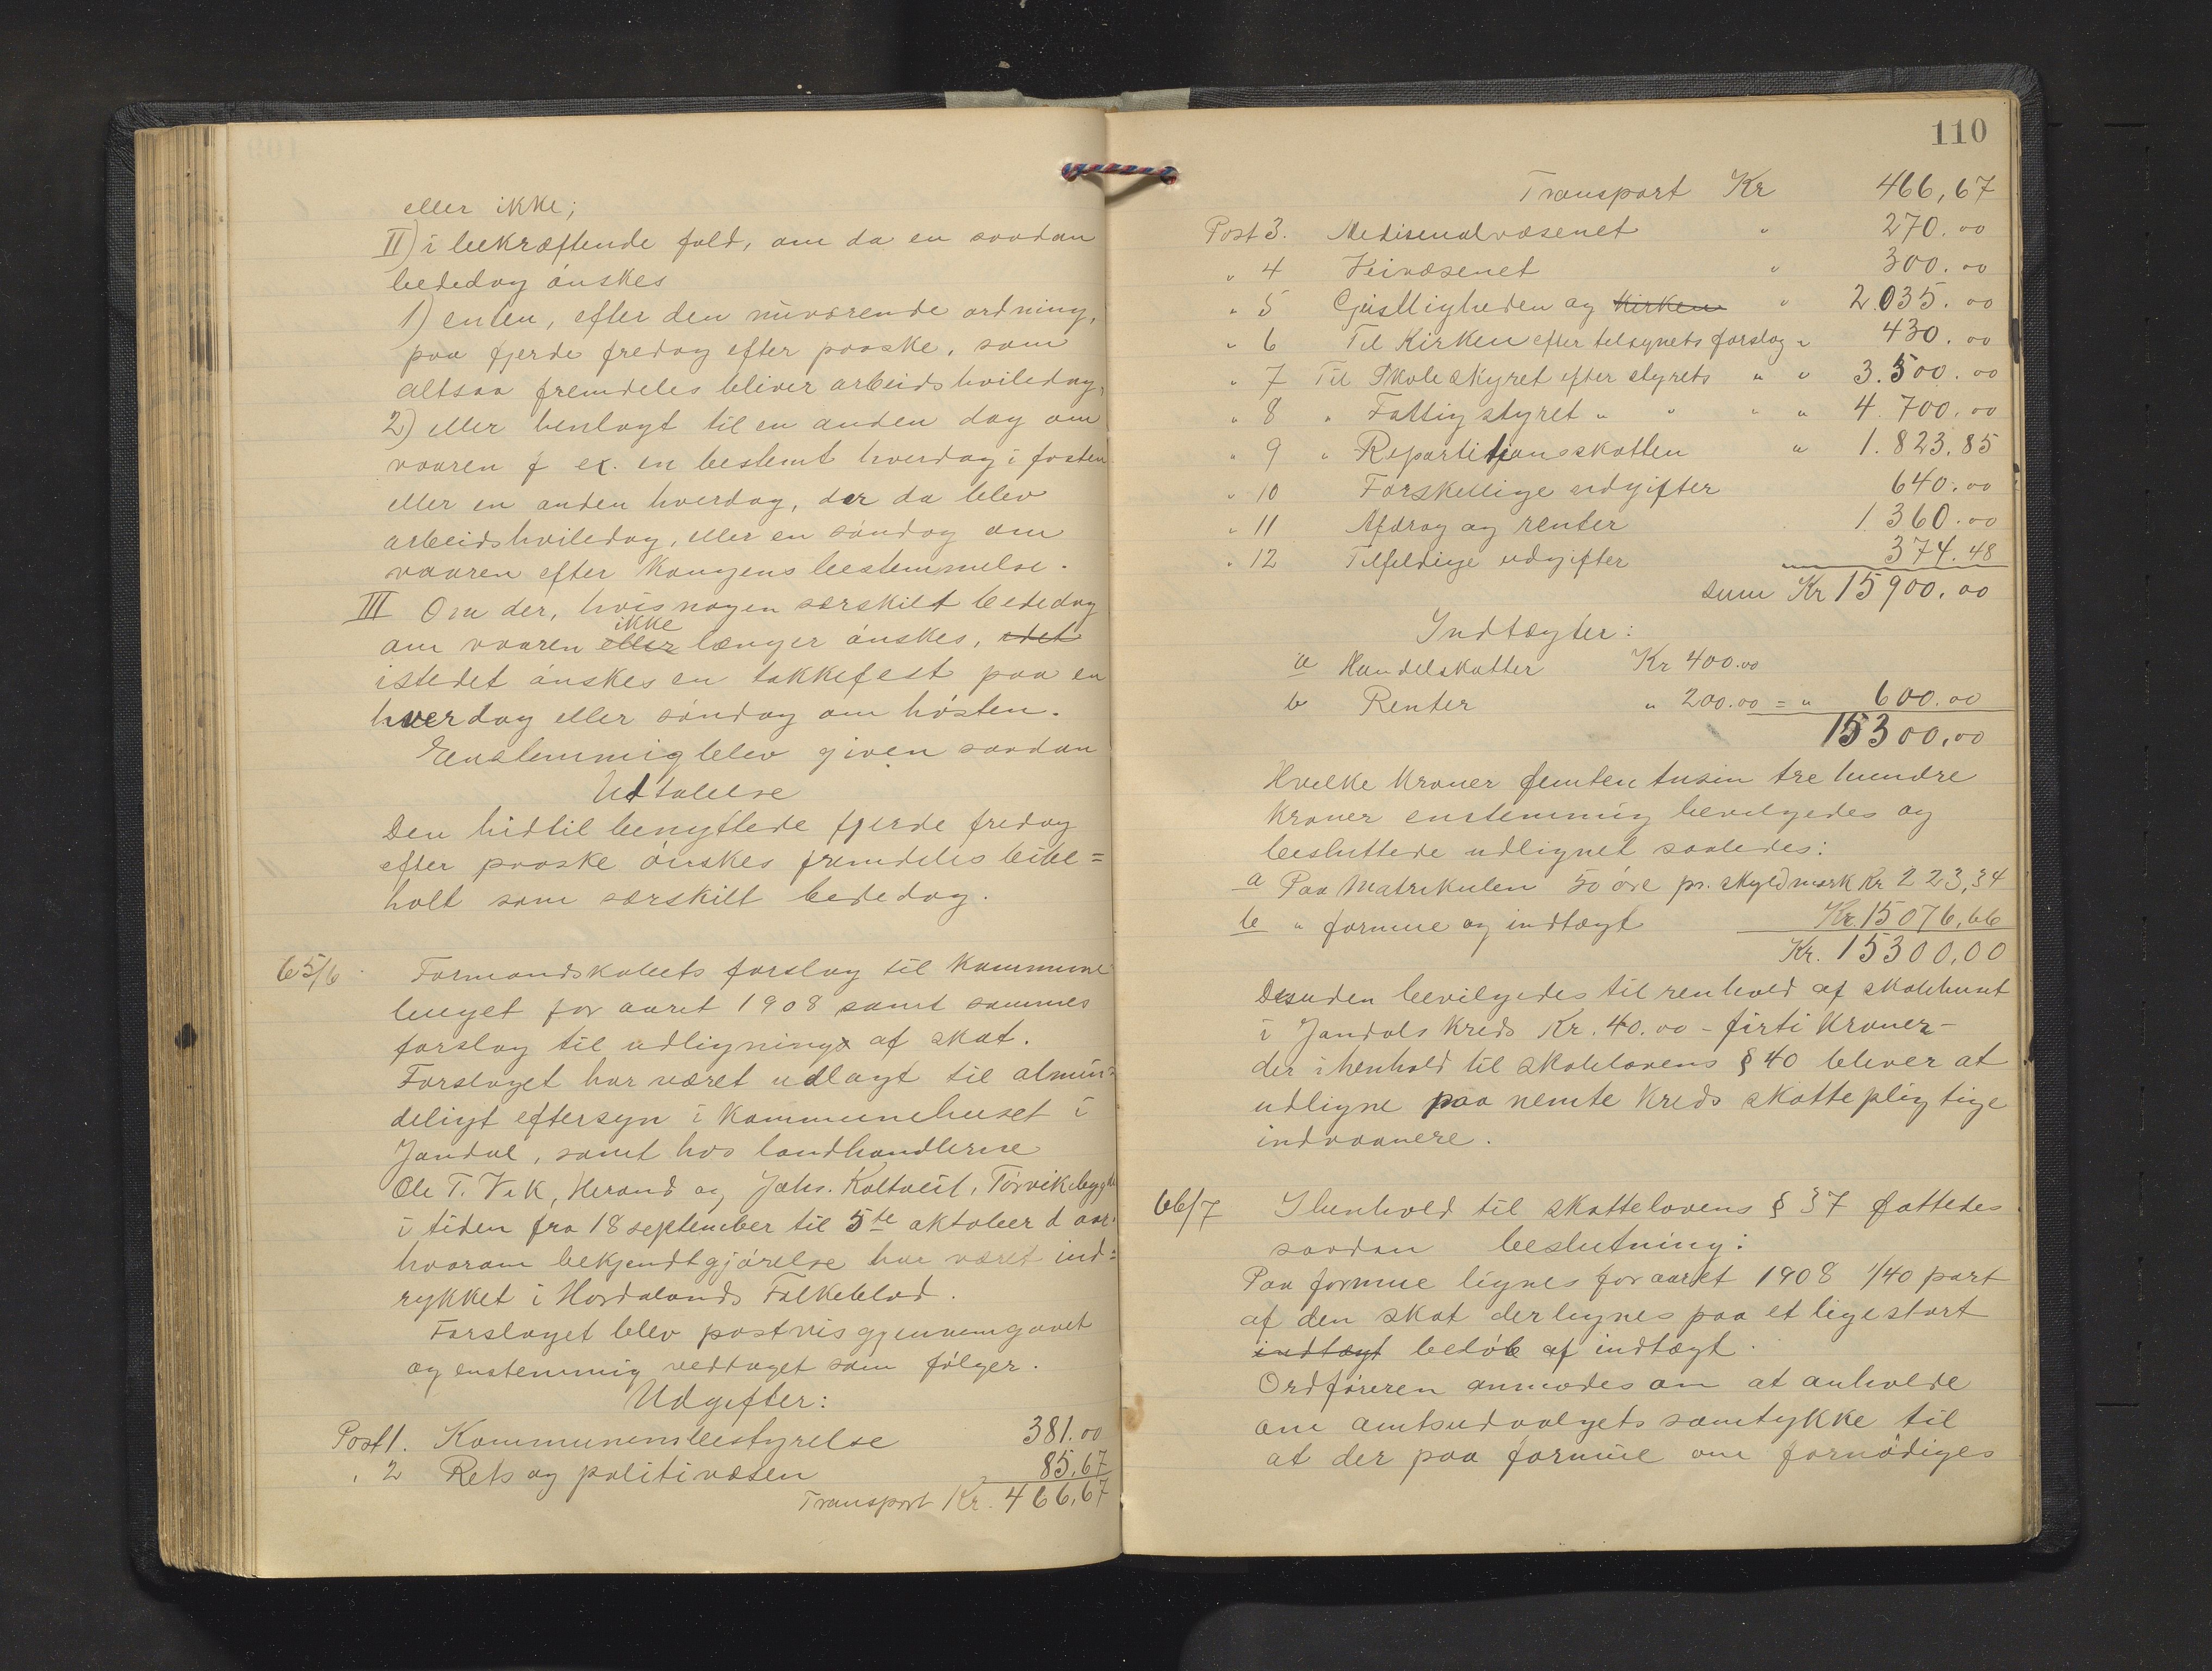 eller ikke;
II) i bekræftende fald, om da en saadan
bededag ønskes
1) enten, efter den nuværende ordning,
paa fjerde fredag efter paaske, som
altsaa fremdeles bliver arbeidshviledag,
2) eller henlagt til en anden dag om
vaaren f ex. en bestemt hverdag i fasten
eller en anden hverdag, der da blev
arbeidshviledag, eller en søndag om
vaaren efter Kongens bestemmelse.
III Om der, hvis nogen særskilt bededag
ikke
om vaaren eller længer ønskes, idet
istedet ønskes en takkefest paa en
hverdag eller søndag om høsten.
Enstemmig blev given saadan
Udtalelse
Den hidtil benyttede fjerde fredag
efter paaske ønskes fremdeles bibe=
holt som særskilt bededag.
65/6. Formandskabets forslag til Kommune
buget for aaret 1908 samt sammes
forslag til udligning af skat.
Forslaget har været udlagt til almin=
deligt eftersyn i Kommunehuset i
Jondal, samt hos landhandlerne
Ole T. Vik, Herand og Johs. Koltveit, Torvikbygd
i tiden fra 18 september til 5te oktober d aar.
hvorom bekjendtgjørelse har været ind=
rykket i Hordalands Folkeblad.
Forslaget blev postvis gjennemgaaet
og enstemmig vedtaget som følger.
Udgifter:
Post 1. Kommunensbestyrelse 381.00
" 2 Rets og politivæsen 85,67
Transport Kr. 466,67
110
Transport Kr 466,67
Post 3. Medisenalvæsenet " 270.00
" 4 Veivæsenet " 300.00
" 5 Geistligheden og Kirken " 2.035.00
" 6 Til Kirken efter tilsynets forslag " 430.00
" 7 Til Skoleskyret efter styrets " " 3.500.00
" 8 " Fattigstyret " " " " 4.700.00
" 9 " Repartitionsskatten " 1.823.85
" 10 Forskellige udgifter 640.00
" 11 Afdrag og renter 1.360.00
" 12 Tilfeldige udgifter 374.48
sum Kr 15900.00
Indtægter:
a Handelskatter Kr 400.00
b Renter " 200.00 = " 600.00
15300,00
Hvilke Kroner femten tusin tre hundre
Kroner enstemmig bevilgedes og
besluttede udlignet saaledes:
a Paa Matrikulen 50 øre pr. skyldmark Kr 223,34
b " formue og indtægt Kr. 15076,66
Kr. 15300,00
Desuden bevilgedes til renhold af skolehuset
i Jondals Kreds Kr. 40.00 - firti Kroner -
der i henhold til skolelovens § 40 bliver at
udligne paa nemte Kreds skattepligtige
indvaanere.
66/7 I henhold til skattelovens § 37 fattedes
saadan beslutning:
Paa formue lignes for aaret 1908 1/40 part
af den skat der lignes paa et lige stort
indtægt beløb af indtægt.
Ordføreren anmodes om at anholde
om amtsudvalgets samtykke til
at der paa formue om fornødiges